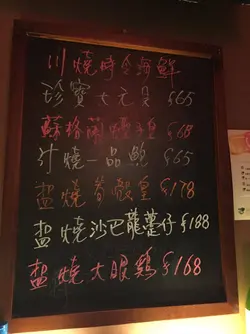 川燒時令海鮮
珍寶大元貝 $65
蘇格蘭蟶子皇 $68
汁燒一品鮑 $65
盐燒香螺皇 $178
盐燒沙巴龍躉仔 $188
盐燒大眼鷄 $168